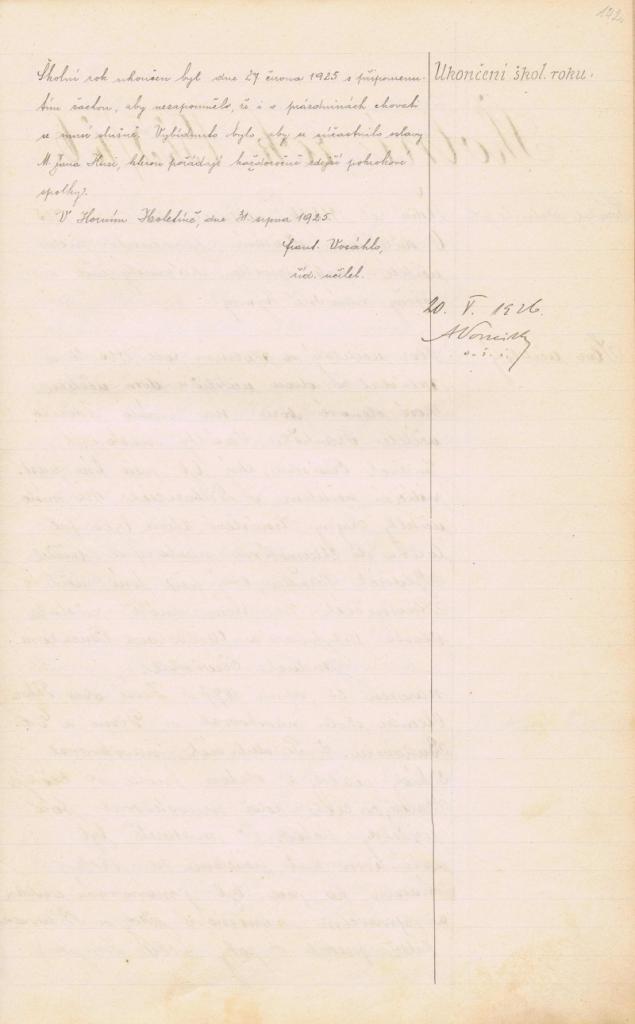 192.
Ukončení škol. roku.
Školní rok ukončen byl dne 27. června 1925 s připomenu-
tím žactvu, aby nezapomnělo, že i o prázdninách chovati
se musí slušně. Vybídnuto bylo, aby se súčastnilo oslavy
M. Jana Husi, kterou pořádají každoročně zdejší pokrokové
spolky.
V Horním Holetíně, dne 31. srpna 1925.
Frant. Vosáhlo,
říd. učitel.
20. V. 1926.